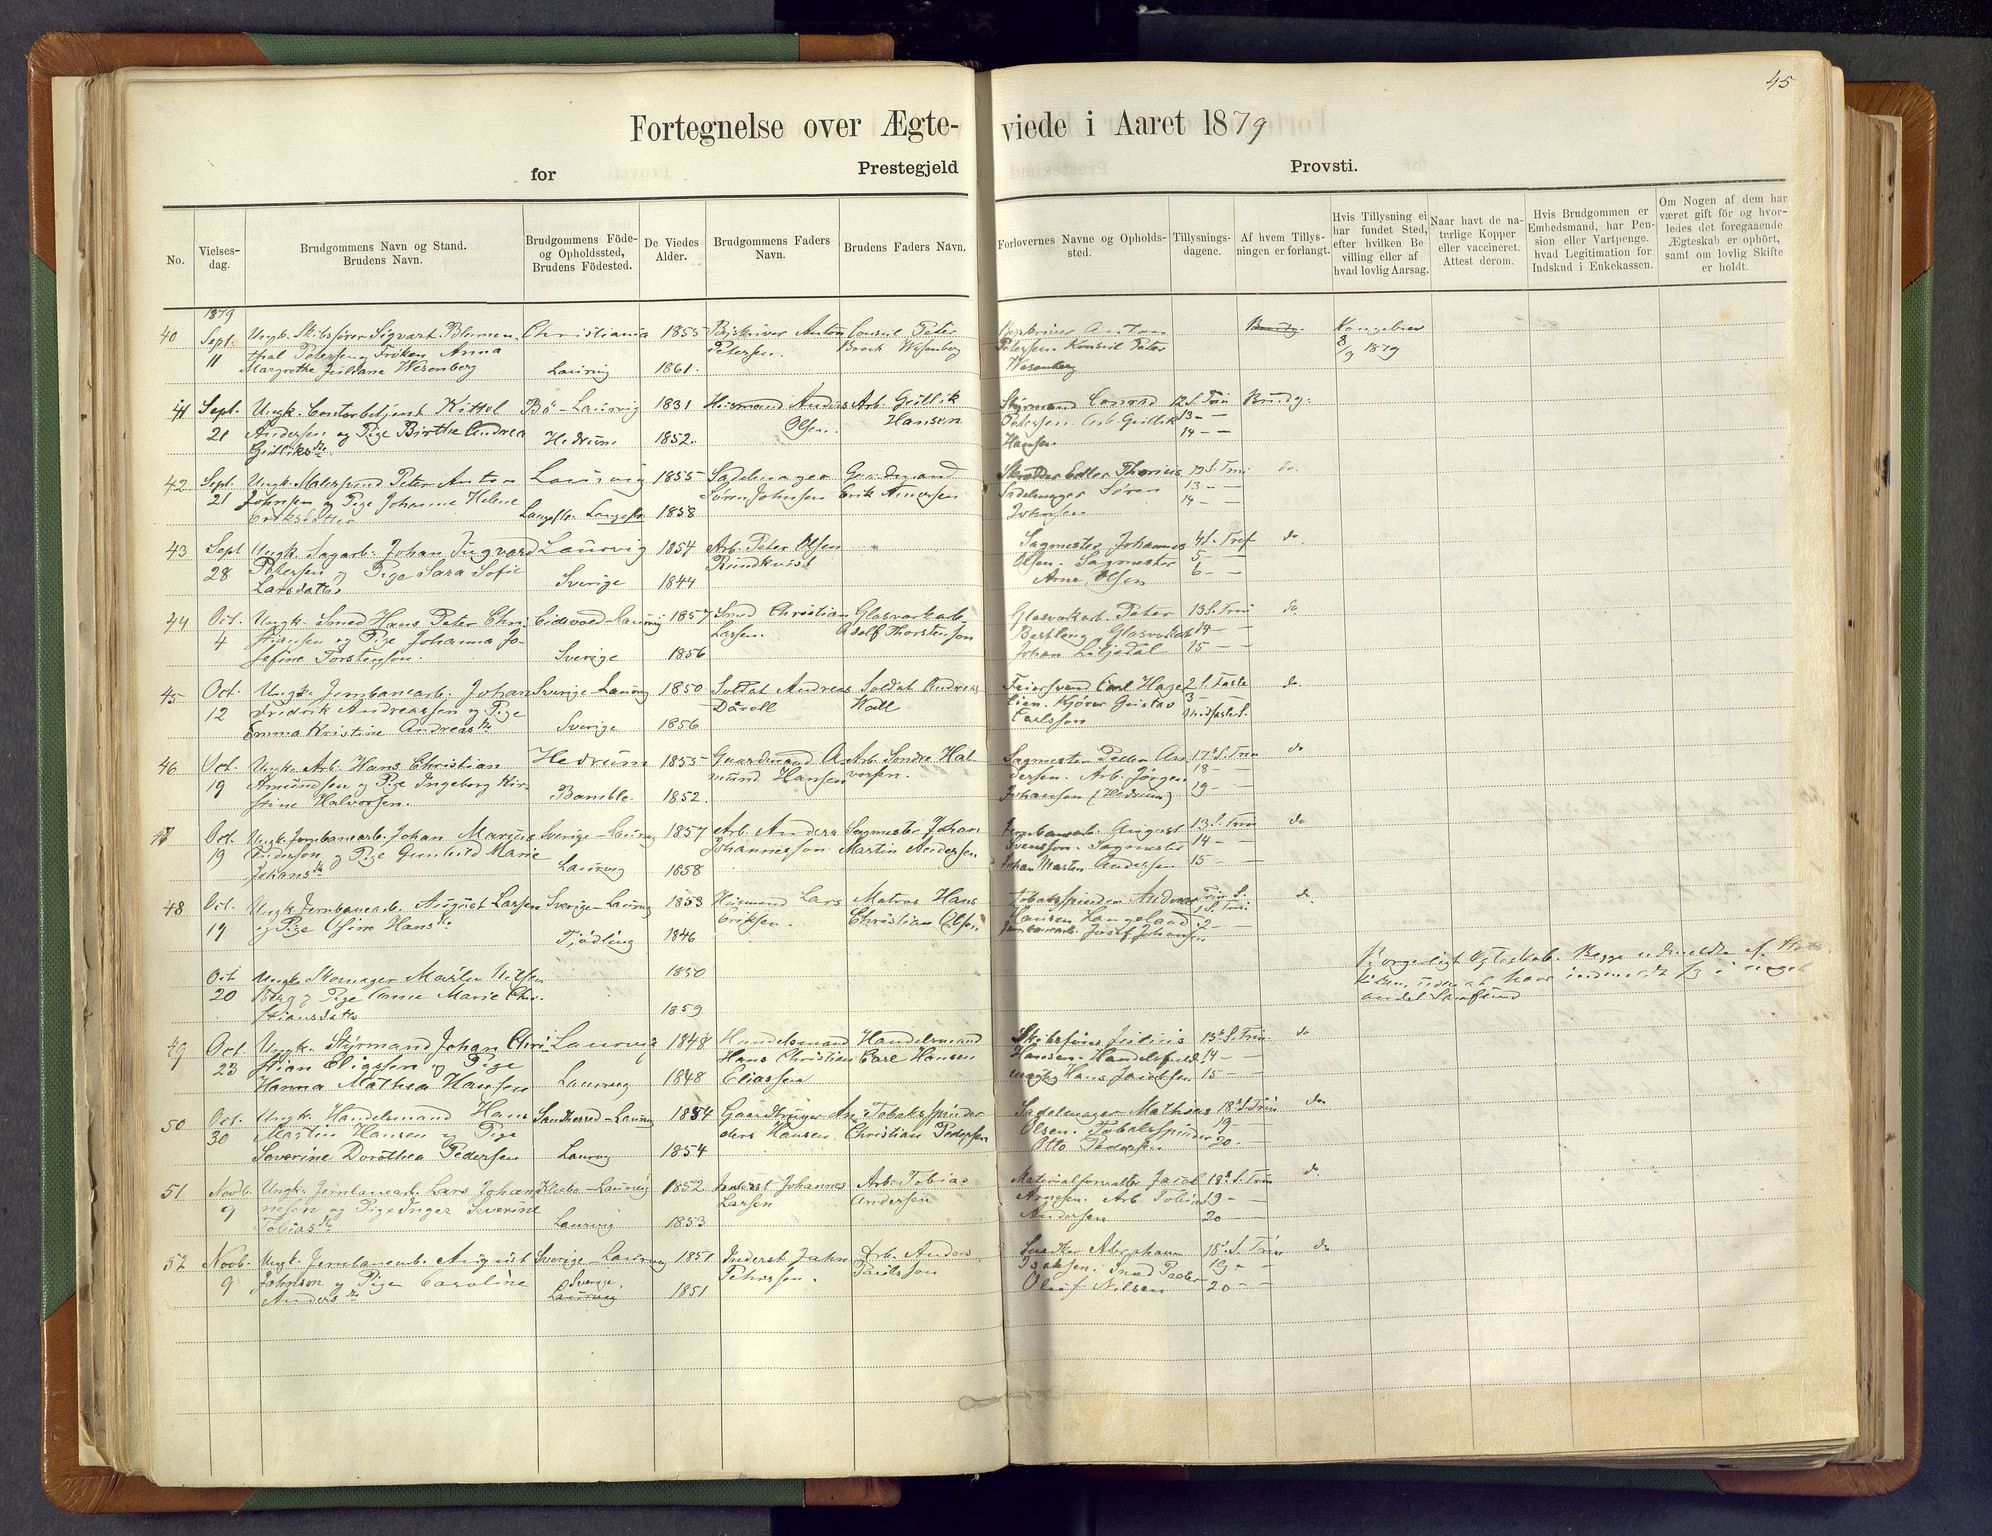 45
Fortegnelse over Ægte- viede i Aaret 1879
for Prestegjeld Provsti.
No.
Vielses-
dag.
Brudgommens Navn og Stand.
Brudens Navn.
Brudgommens Føde-
og Opholdssted,
Brudens Fødested.
De Viedes
Alder.
Brudgommens Faders
Navn.
Brudens Faders Navn.
Forlovernes Navne og Opholds-
sted.
Tillysnings-
dagene.
Af hvem Tillys-
ningen er forlangt.
Hvis Tillysning ei
har fundet Sted,
efter hvilken Be-
villing eller af
hvad lovlig Aarsag.
Naar havt de na-
turlige Kopper
eller vaccineret.
Attest derom.
Hvis Brudgommen er
Embedsmand, har Pen-
sion eller Vartpenge.
hvad Legitimation for
Indskud i Enkekassen.
Om Nogen af dem har
været gift før og hvor-
ledes det foregaaende
Ægteskab er ophørt,
samt om lovlig Skifte
er holdt.
1879
40 Sept. Ungk. Skibsfører Sigvart Blumen- Christiania 1855 Anton Consul Peter
11 thal Petersen og Frøken Anna Petersen. Brock Wesenberg
Margrethe Juliane Wesenberg Laurvig 1861.
Anton Kongebrev
Petersen. Konsul Peter 8/9 1879
Wesenberg
41 Sept. Ungk. Contorbetjent Kittel Bø - Laurvig 1831 Husmand Anders Arb. Gullik
21 Andersen og Pige Birthe Andrea Olsen. Hansen
Gulliksdtr Hedrum 1852.
Styrmand Conrad 12 S. Trin Brudg.
Petersen. Arb. Gullik 13 - -
Hansen 14 - -
42 Sept. Ungk. Peter Anton Laurvig 1855 Sadelmager Gaardmand
21 Johnsen og Pige Johanne Helene Søren Johnsen Erik Andersen
Eriksdatter 1858
12 S. Trin do.
Sadelmager Søren 13 - -
Johnsen 14 - -
43 Sept Ungk. Sagarb. Johan Ingvard Laurvig 1854 Arb. Peter Olsen
28 Petersen og Pige Sara Sofie Rundkvist
Larsdatter Sverige 1844
Sagmester Johannes 4 S. Tref do.
Olsen. Sagmester 5 - -
Arne Olsen 6 - -
44 Oct. Ungk. Smed Hans Peter Chri- Eidsvold - Laurvig 1857 Smed Christian Glasværkarb.
4 stiansen og Pige Johanna Jo- Larsen. Adolf Thorstensson
sefine Torstenson. Sverige 1856
Glasværkarb. Peter 13 S. Trin do.
Glasværkarb 14 - -
Johan Liljedal 15 - -
45 Oct. Ungk. Jernbanearb. Johan Sverige - Laurvig 1850 Soldat Andreas Soldat Andreas
12 Fredrik Andreassen og Pige Wall
Emma Kristine Andreasdtr Sverige 1856
Carl Hage- 2 S. Faste do.
lien. Kjører Gustav 3 -
Carlsson Midfaste S.
46 Oct. Ungk. Arb. Hans Christian Hedrum 1855 Gaardmand A- Arb. Sondre Hal-
19 Amundsen og Pige Ingeborg Kir- mund Hansen vorsen.
stine Halvorsen. Bamble 1852.
Sagmester Peder An- 17 S. Trin do
dersen. Arb. Jørgen 18 - -
Johansen (Hedrum) 19 - -
47 Oct. Ungk. Jernbanearb. Johan Marius Sverige - Laurvig 1857 Arb. Anders Sagmester Johan
19 Anderson og Pige Gunhild Marie Johannesson Martin Andersen
Johansdtr Laurvig 1858
Jernbanearb. August 13 S. Trin do
Svensson. Sagmester 14 - -
Johan Martin Andersen 15 - -
48 Oct. Ungk. Jernbanearb. August Larsen Sverige - Laurvig 1853 Husmand Lars Matros Hans
19 og Pige Hansdtr Eriksen. Christian Olsen
Tjødling 1846
Tobaksspinder Anders Trin S. do
Hansen Langeland 1 S. Trin
Jernbanearb. Josef Johansen 2 -
Oct Ungk. Skomager Martin Nilsen 1850
20 Berg og Pige Anne Marie Chri-
stiansdatter 1859
Borgerligt Ægteskab. Begge udmeldte af Stats-
kirken, uden at have indmeldt sig i noget
andet Samfund
49 Oct. Ungk. Styrmand Johan Chri- Laurvig 1848 Handelsmand Handelsmand
23 stian Eliassen og Pige Hans Christian Carl Hansen
Hanna Mathea Hansen Laurvig 1848 Eliassen
Skibsfører Julius 13 S. Trin do
Hansen. Handelsfuld- 14 - -
mægtig Hans Jacobsen 15 - -
50 Oct. Ungk. Handelsmand Hans Sandherred - Laurvig 1854 Gaardbruger An- Tobaksspinder
30 Martin Hansen og Pige ders Hansen. Christian Pedersen
Severine Dorothea Pedersen Laurvig 1854
Sadelmager Mathias 18 S. Trin do
Olsen. Tobaksspinder 19 - -
Otto Pedersen 20 - -
51 Novb. Ungk. Jernbanearb. Lars Johan- - Laurvig 1852 Johannes Arb. Tobias
9 nesen og Pige Inger Severine Larsen Andersen
Tobiasdtr Laurvig 1853
Materialforvalter Jacob 18 S. Trin do
Arnesen. Arb. Tobias 19 - -
Andersen 20 - -
52 Novb. Ungk. Jernbanearb. August Sverige - Laurvig 1851 Inderst John Arb. Anders
9 Johnson og Pige Caroline Sverige. Paulsson
Andersdtr Laurvig 1851
Snedker Abraham 18 S. Trin do
Isaksen. Smed Peder 19 - -
Oluf Nilsen 20 - -